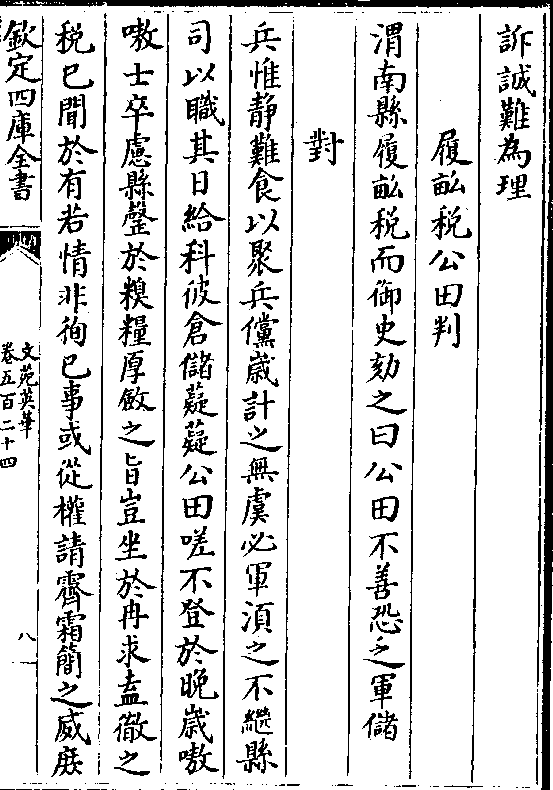 訴誠難為理
履畝税公田判
渭南縣履畝税而御史劾之曰公田不善恐乏軍儲
對
兵惟静難食以聚兵儻歳計之無虞必軍湏之不繼縣
司以職其日給科彼倉儲薿薿公田嗟不登於晩歳嗷
嗷士卒慮縣罄於糗糧厚斂之旨豈坐於冉求盍徹之
税已聞於有若情非徇已事或從權請霽霜簡之威庶
欽定四庫全書
文苑英華
卷五百二十四
八